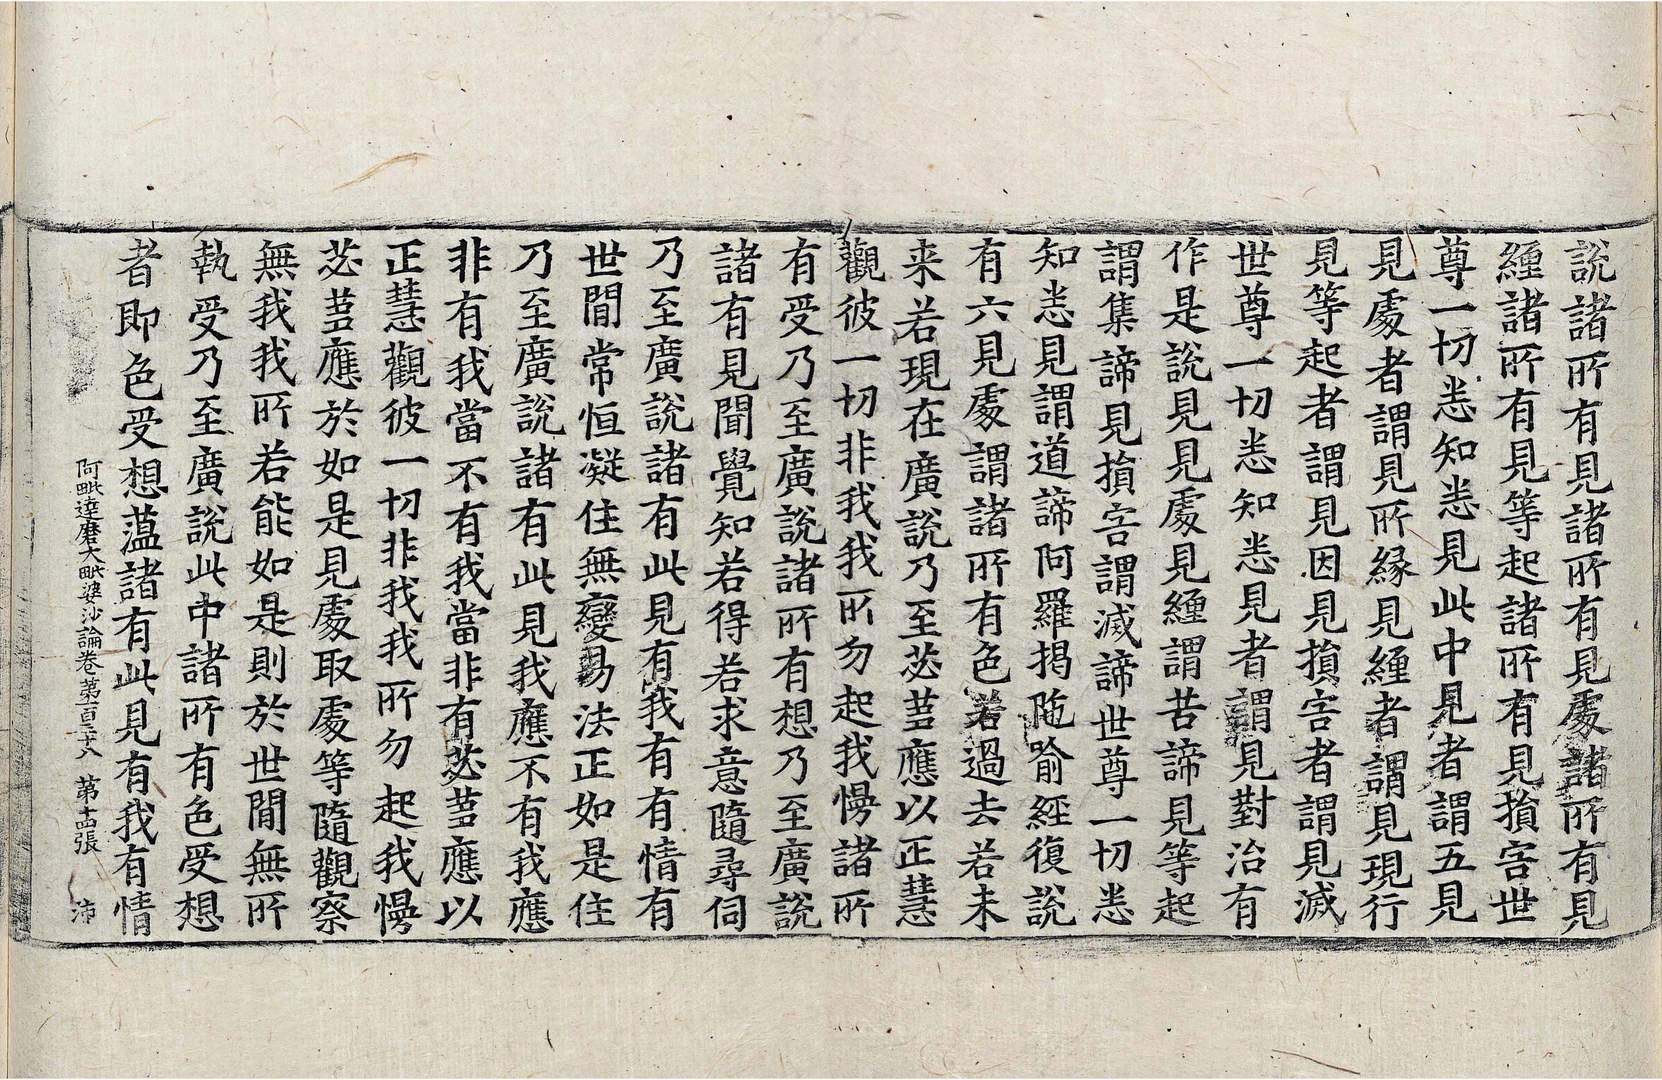 說諸所有見諸所有見處諸所有見
纏諸所有見等起諸所有見損害世
尊一切悉知悉見此中見者謂五見
見處者謂見所緣見纏者謂見現行
見等起者謂見因見損害者謂見滅
世尊一切悉知悉見者謂見對治有
作是說見見處見纏謂苦諦見等起
謂集諦見損害謂滅諦世尊一切悉
知悉見謂道諦阿羅揭陁喻經復說
有六見處謂諸所有色若過去若未
来若現在廣說乃至苾芻應以正慧
觀彼一切非我我所勿起我慢諸所
有受乃至廣說諸所有想乃至廣說
諸有見聞覺知若得若求意隨尋伺
乃至廣說諸有此見有我有有情有
世間常恒凝住無變易法正如是住
乃至廣說諸有此見我應不有我應
非有我當不有我當非有苾芻應以
正慧觀彼一切非我我所勿起我慢
苾芻應於如是見處取處等隨觀察
無我我所若能如是則於世間無所
執受乃至廣說此中諸所有色受想
者即色受想薀諸有此見有我有情
阿毗達磨大毗婆沙論卷第一百九十八 第十四張 沛